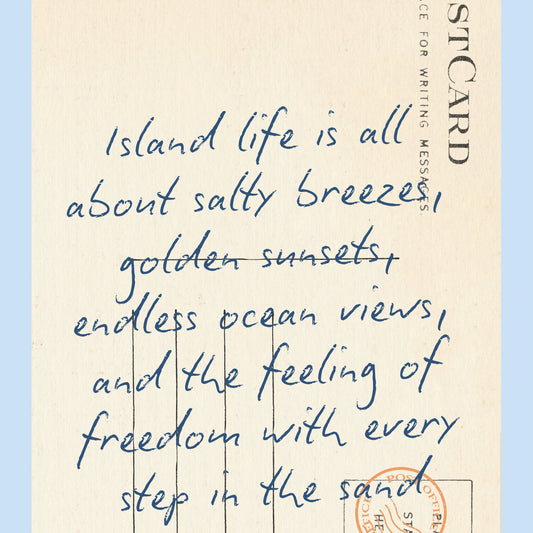 Island life is all
about salty breezes,
golden sunsets,
endless ocean views,
and the feeling of
freedom with every
step in the sand
STCARD
CE FOR WRITING MESSAGES
POST OFFICE